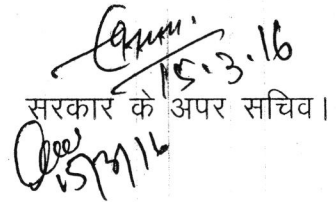 15.3.16
सरकार के अपर सचिव।
15/3/16